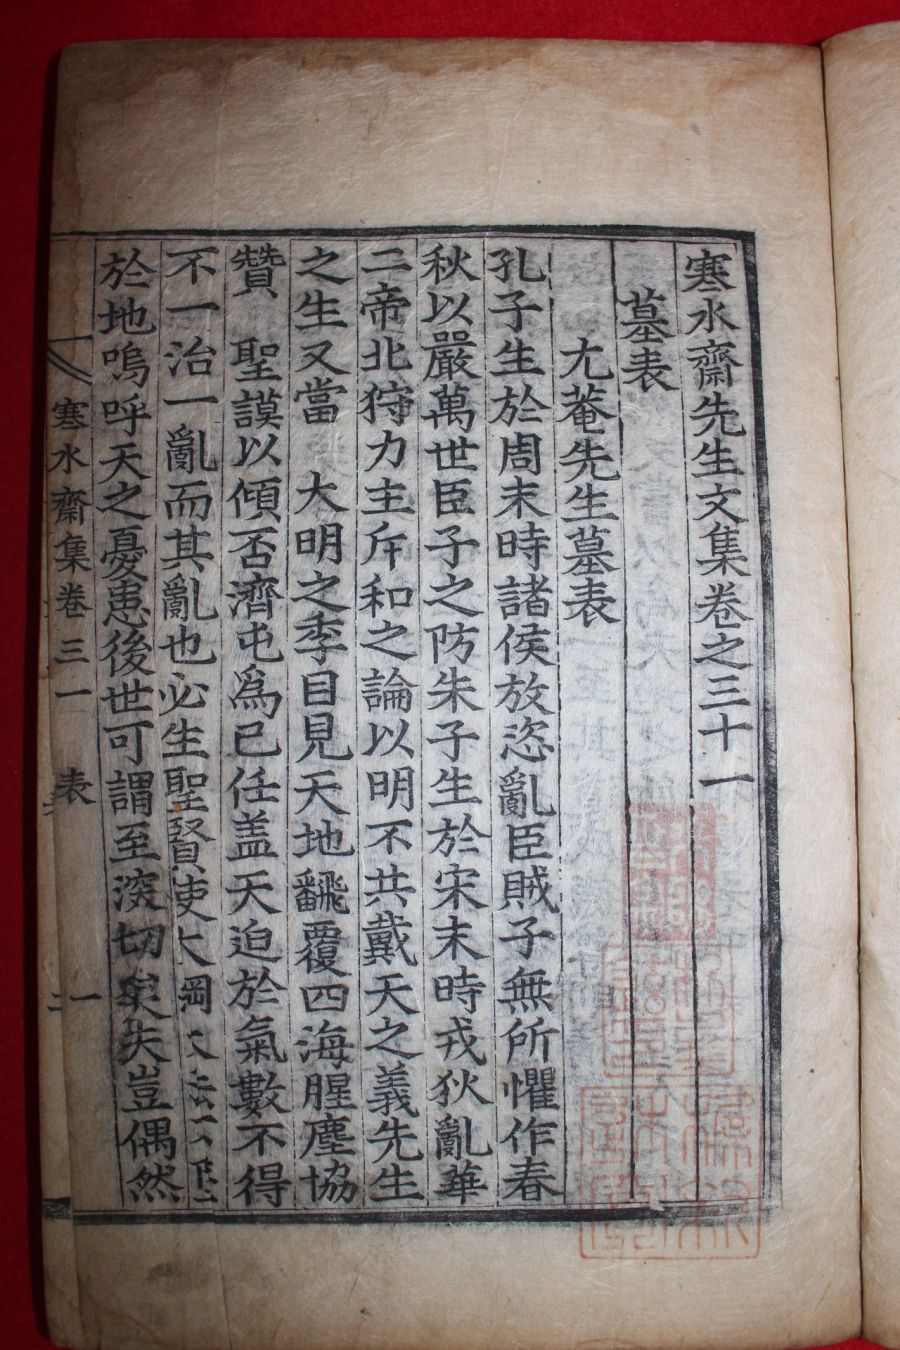 寒水齋先生文集卷之三十一
墓表
尤菴先生墓表
孔子生於周末時諸侯放恣亂臣賊子無所懼作春
秋以嚴萬世臣子之防朱子生於宋末時戎狄亂華
二帝北狩力主斥和之論以明不共戴天之義先生
之生又當 大明之季目見天地飜覆四海腥塵協
贊 聖謨以傾否濟屯爲己任盖天迫於氣數不得
不一治一亂而其亂也必生聖賢使大綱
於地嗚呼天之憂患後世可謂至深切矣夫豈偶然
寒水齋集卷三一 表 一